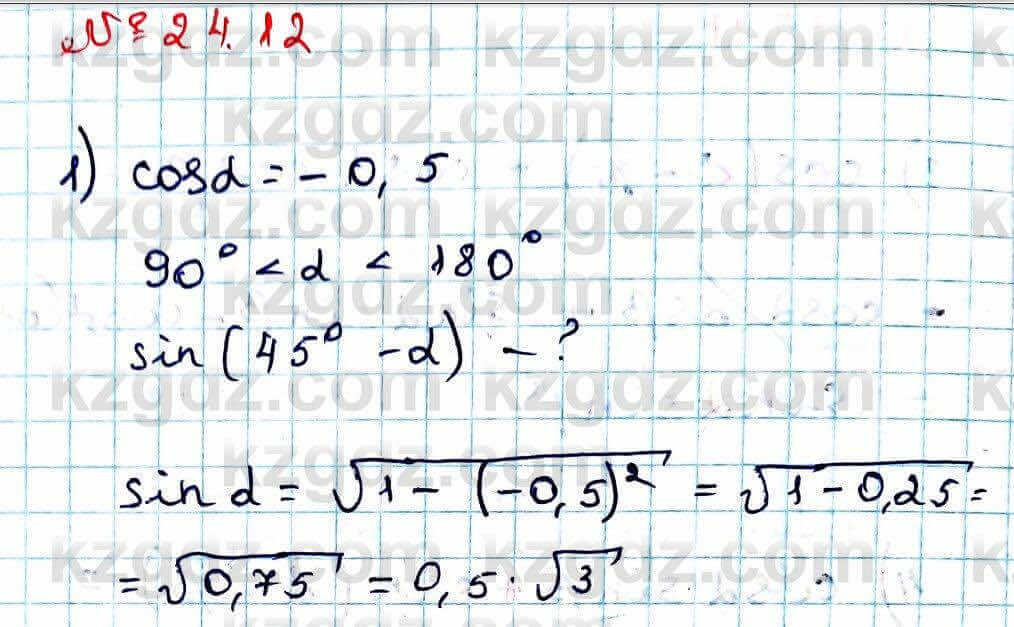 № 24.12
kzgdz.com kzgdz.com
kzgdz.com
1) cosα = - 0,5
kzgdz.com kzgdz.com
90° < α < 180°
kzgdz.com
sin(45° - α) - ?
kzgdz.com kzgdz.com
kzgdz.com
sin α = √1 - (-0,5)² = √1 - 0,25 =
kzgdz.com kzgdz.com
= √0,75 = 0,5 · √3